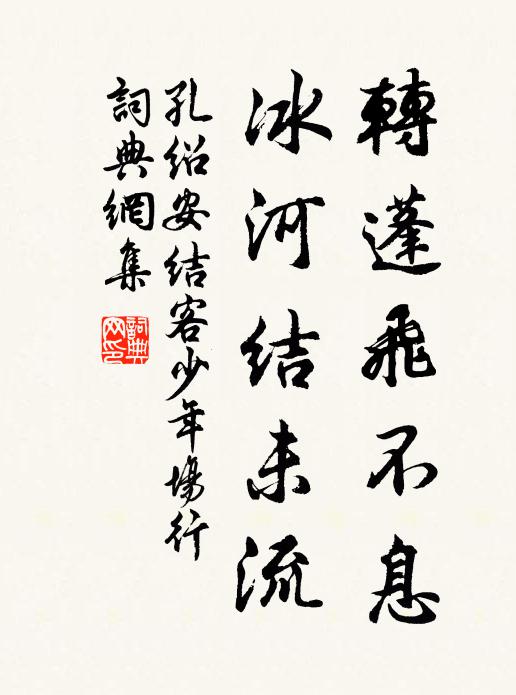 轉蓬飛不息
冰河結未流
孔紹安結客少年場行
詞典網集
詞典網印